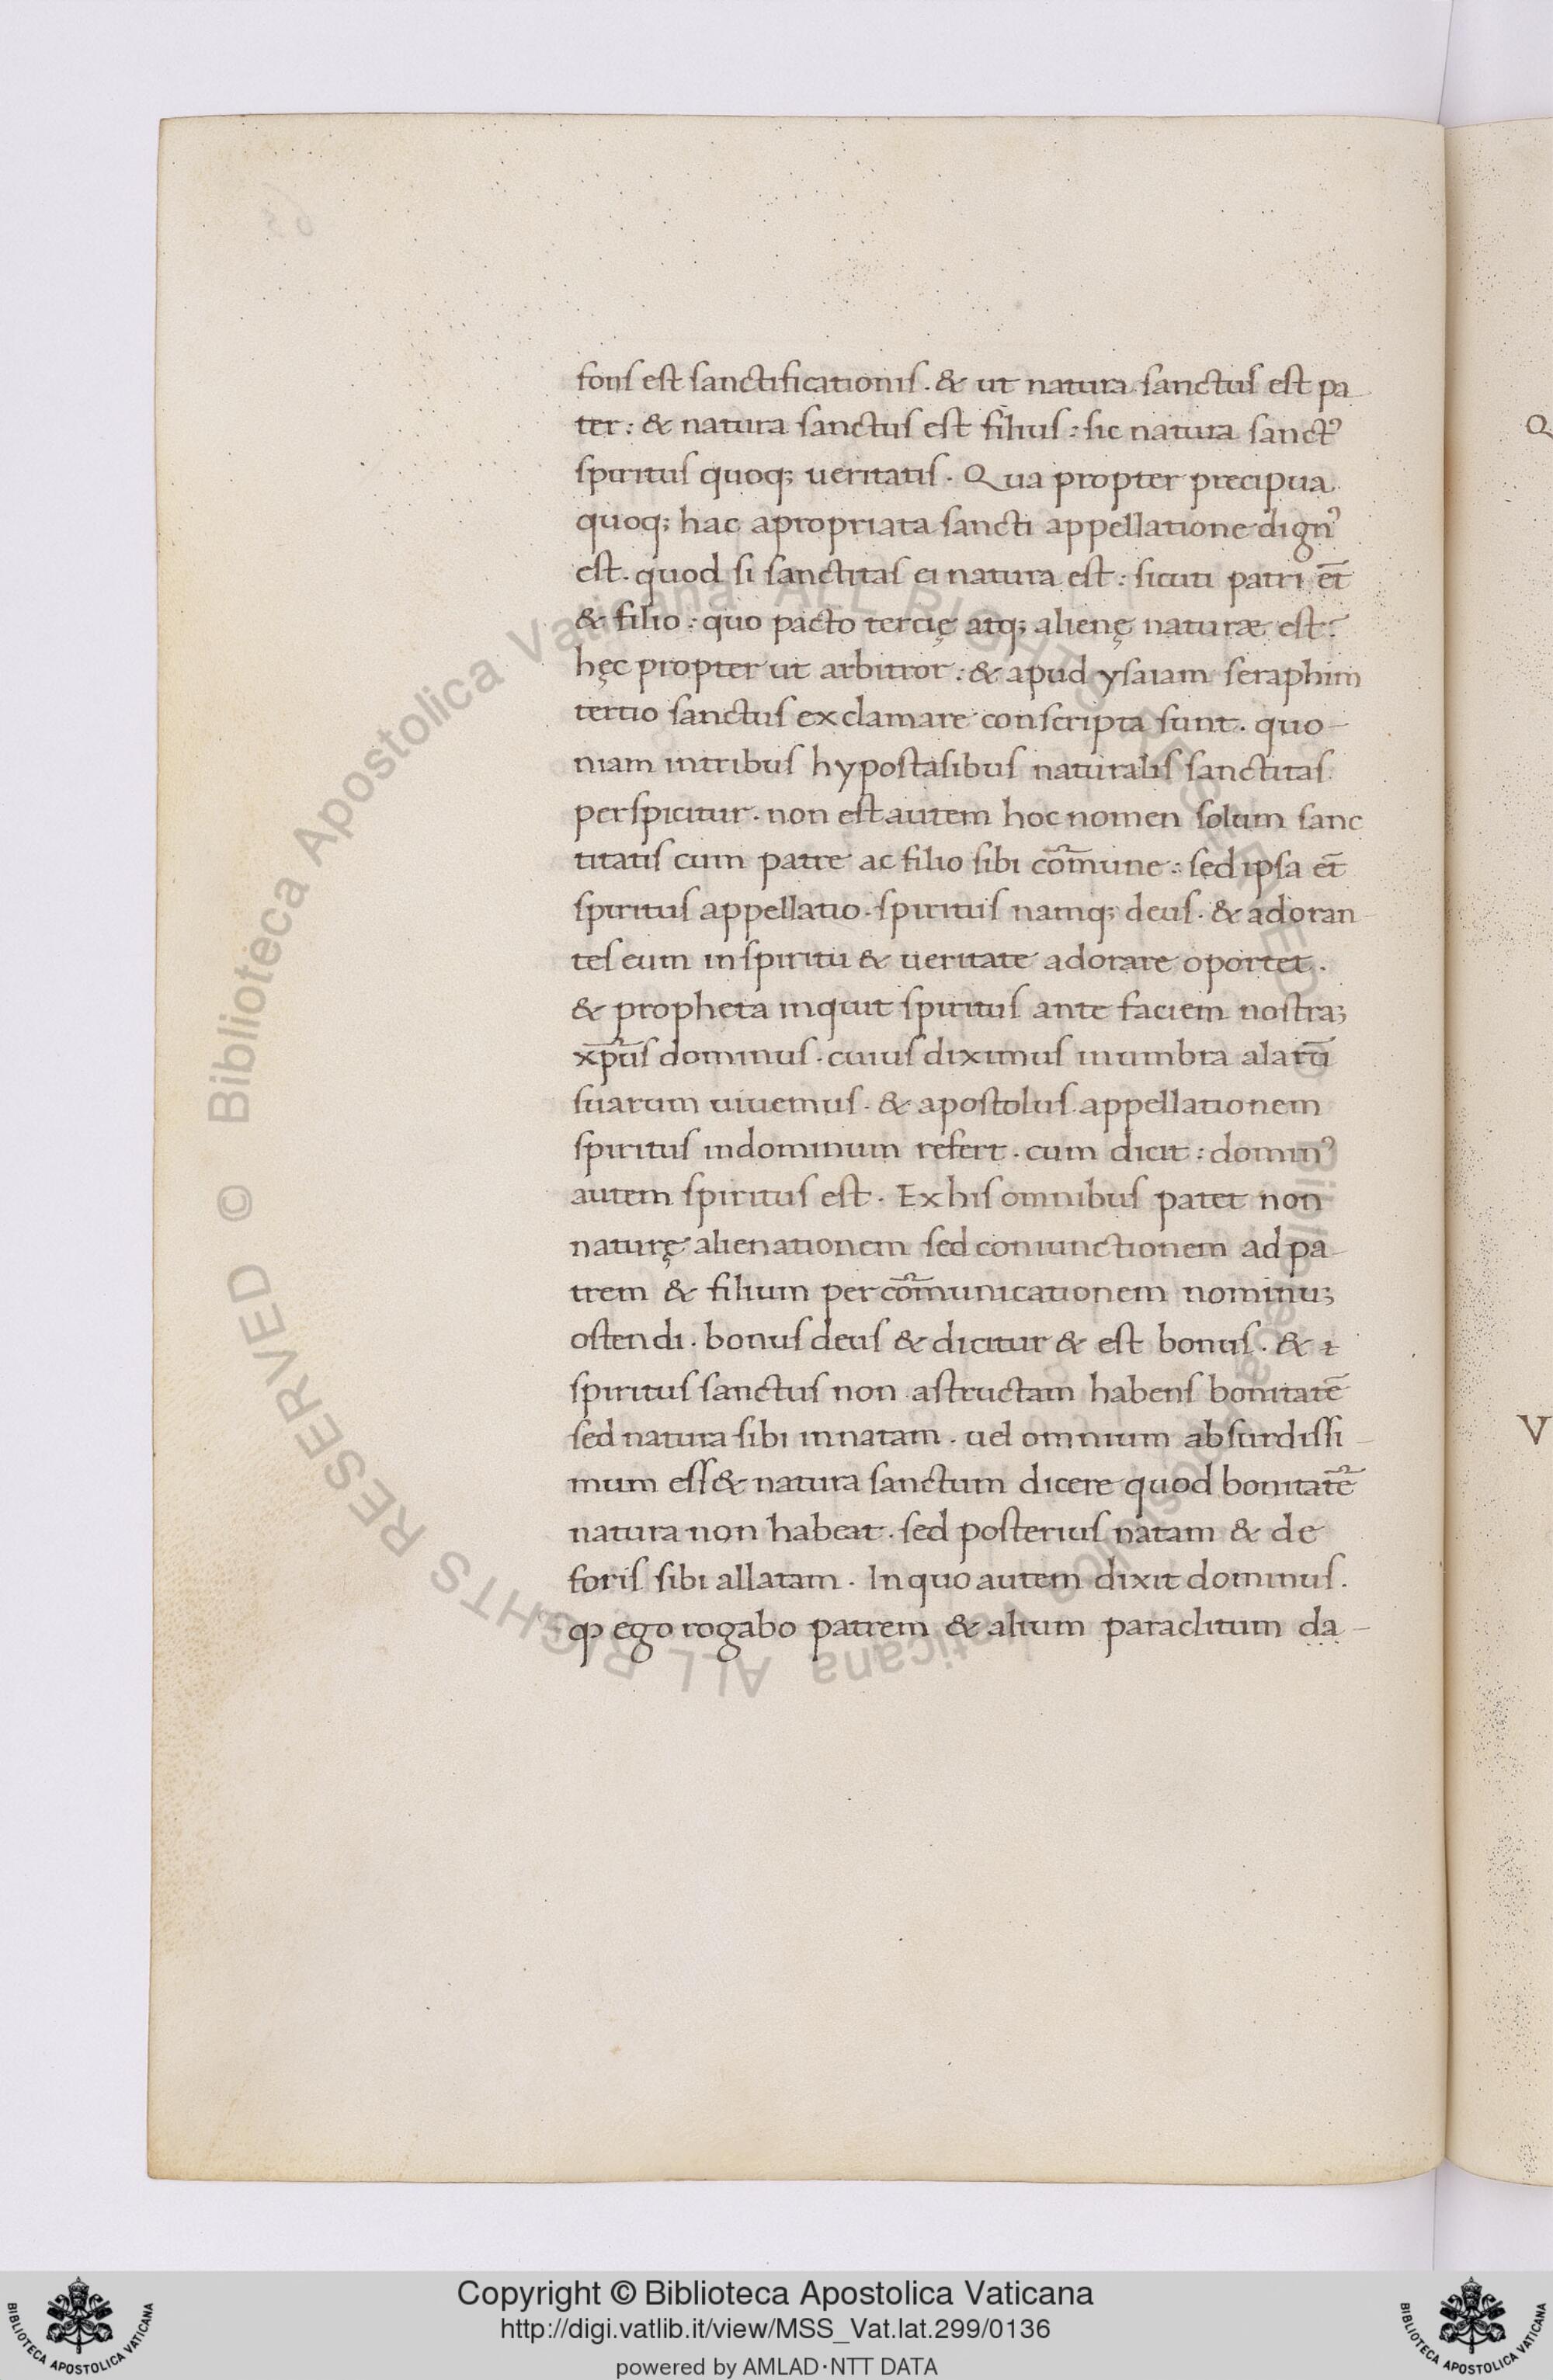 fons est sanctificationis. & ut natura sanctus est pa-
ter: & natura sanctus est filius: sic natura sanctꝰ
spiritus quoq; ueritatis. Qua propter precipua
quoq; hac apropriata sancti appellatione dignꝰ
est. quod si sanctitas ei natura est: sicuti patri et̄
& filio: quo pacto tercię atq; alienę naturæ est?
hęc propter ut arbitror: & apud ysaiam seraphim
tertio sanctus exclamare conscripta sunt. quo-
niam in tribus hypostasibus naturalis sanctitas
perspicitur. non est autem hoc nomen solum sanc
titatis cum patre ac filio sibi cōmune: sed ipsa et̄
spiritus appellatio. spiritus namq; deus. & adoran-
tes eum in spiritu & ueritate adorare oportet.
& propheta inquit spiritus ante faciem nostraꝫ
xp̄us dominus. cuius diximus in umbra alarū
suarum uiuemus. & apostolus appellationem
spiritus in dominum refert. cum dicit: dominꝰ
autem spiritus est. Ex his omnibus patet non
naturę alienationem sed coniunctionem ad pa-
trem & filium per cōmunicationem nominuꝫ
ostendi. bonus deus & dicitur & est bonus. & ė
spiritus sanctus non astructam habens bonitatē
sed natura sibi innatam. uel omnium absurdissi-
mum ess& natura sanctum dicere quod bonitatē
natura non habeat. sed posterius natam & de
foris sibi allatam. In quo autem dixit dominus.
ꝙ ego rogabo patrem & alium paraclitum da-
Q
V
© Biblioteca Apostolica Vaticana ALL RIGHTS RESERVED
© Biblioteca Apostolica Vaticana ALL RIGHTS RESERVED
Copyright © Biblioteca Apostolica Vaticana
http://digi.vatlib.it/view/MSS_Vat.lat.299/0136
powered by AMLAD·NTT DATA
BIBLIOTECA APOSTOLICA VATICANA
BIBLIOTECA APOSTOLICA VATICANA